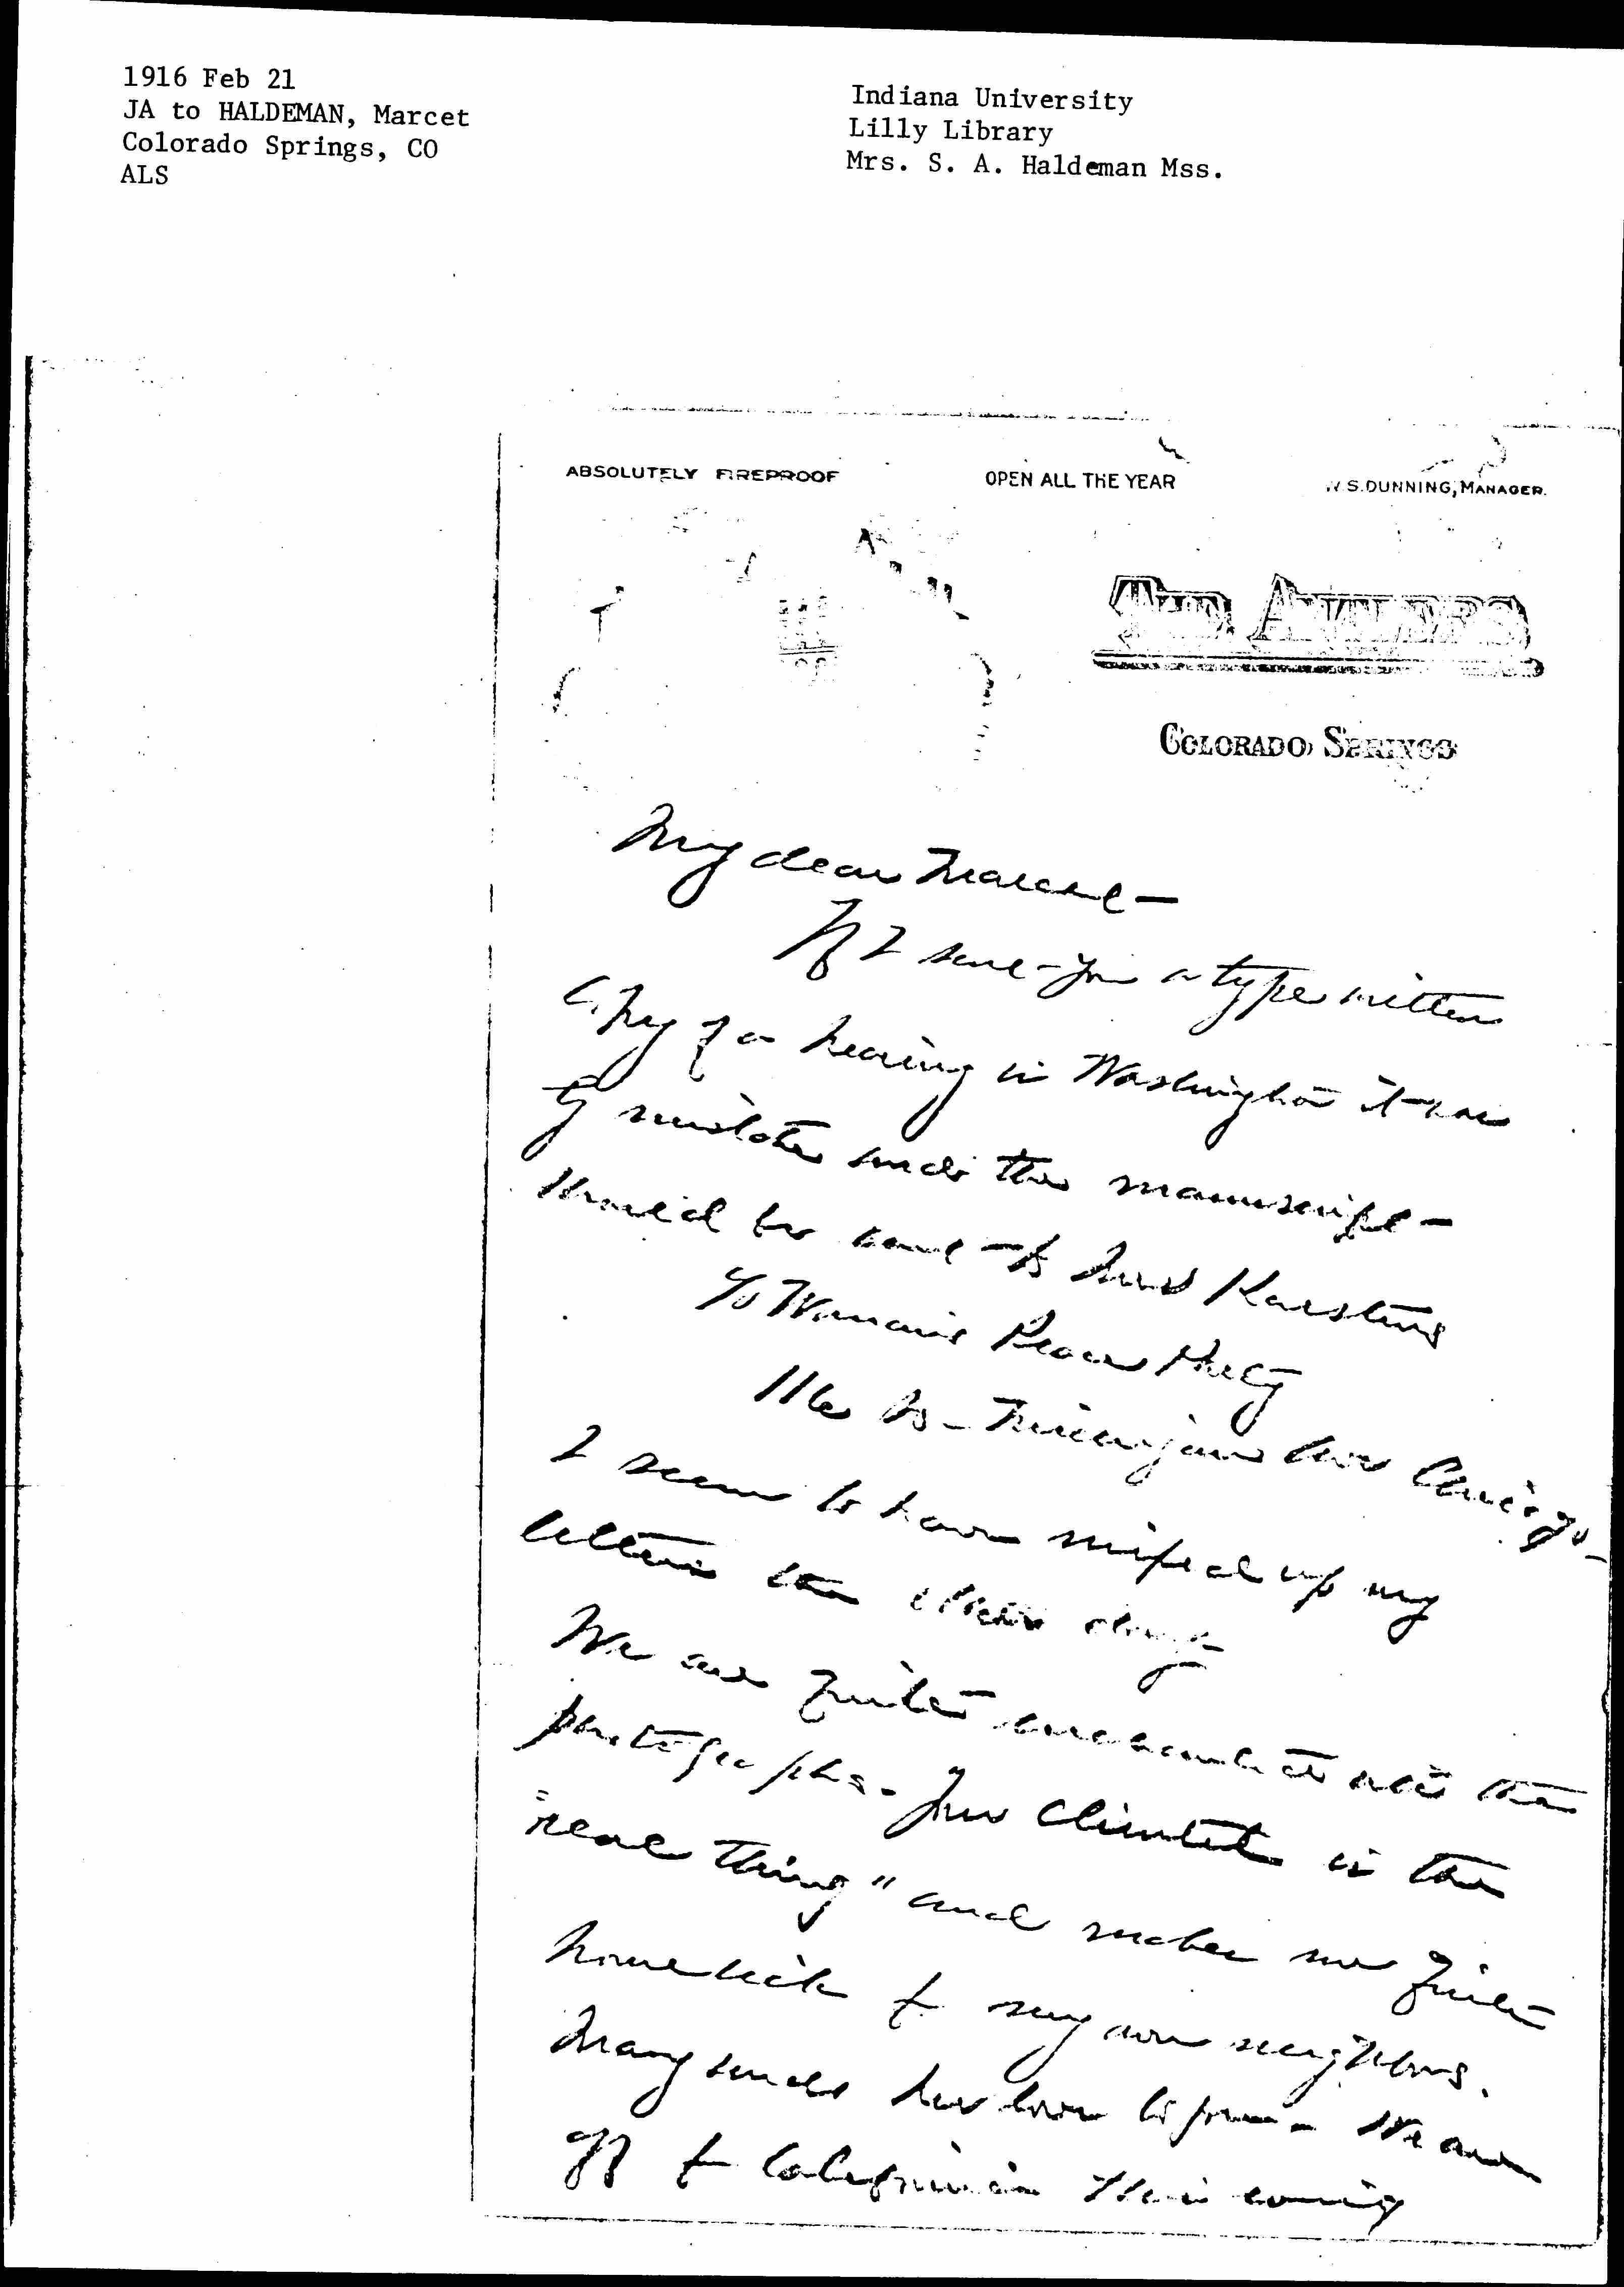 1916 Feb 21
JA to HALDEMAN, Marcet
Colorado Springs, CO
ALS
Indiana University
Lilly Library
Mrs. S. A. Haldeman Mss.
ABSOLUTELY FIREPROOF
OPEN ALL THE YEAR
W.S.DUNNING, MANAGER.
THE ANTLERS
COLORADO SPRINGS
My dear Marcet—
If I sent you a typewritten
copy of a hearing in Washington it was
by mistake and the manuscript—
should be sent to Miss Karsten
c/o Woman's Peace Party
116 So- Michigan Ave Chicago-
I seem to have mixed up my
letters the other day
We are quite enchanted with the
photographs. Your clientele is the
"real thing" and makes me quite
homesick for my own neighbors.
Mary sends her love to you - We are
off for California this evening